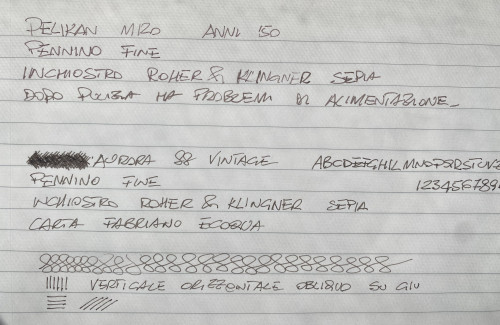 PELIKAN M120 ANNI '50
PENNINO FINE
INCHIOSTRO ROHER & KLINGNER SEPIA
DOPO PULIZIA HA PROBLEMI DI ALIMENTAZIONE_
AURORA 88 VINTAGE ABCDEFGHILMNOPQRSTUVZ
PENNINO FINE 1234567894
INCHIOSTRO ROHER & KLINGNER SEPIA
CARTA FABRIANO ECOQUA
VERTICALE ORIZZONTALE OBLIQUO SU GIU